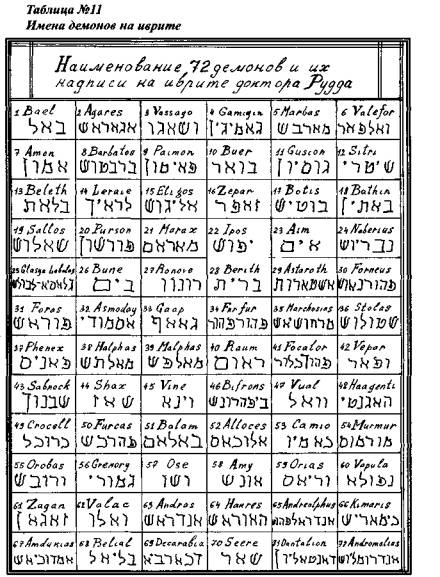 Таблица №11
Имена демонов на иврите
Наименование 72 демонов и их
надписи на иврите доктора Рудда
1 Bael 2 Agares 3 Vassago 4 Gamigin 5 Marbas 6 Valefor
באל אגאראש ושאגו גאמיגין מארבש ואלפאר
7 Amon 8 Barbatos 9 Paimon 10 Buer 11 Guscon 12 Sitri
אמון ברבטוש פאימון בואר גוסיון שיטרי
13 Beleth 14 Leraie 15 Eligos 16 Zepar 17 Botis 18 Bathin
בלאת לראיך אליגוש זאפר בוטיש באתין
19 Sallos 20 Purson 21 Morax 22 Ipos 23 Aim 24 Naberius
שאלוש פורשון מאראס יפוש אים נבריוש
25 Glasya Labolas 26 Bune 27 Ronove 28 Berith 29 Astaroth 30 Forneus
גלאסא-לבולש בים רונוו ברית אשתארות פהורנאוש
31 Foras 32 Asmoday 33 Gaap 34 Furfur 35 Marchosias 36 Stolas
פוראש אסמודי גאאף פהורפהור מרחושאש שטולוש
37 Phenex 38 Halphas 39 Malphas 40 Raum 41 Focalor 42 Vepar
פאנים מאלתש מאלפש ראום ופאר
43 Sabnock 44 Shax 45 Vine 46 Bifrons 47 Vual 48 Haagenti
שבנוך שאז וינא ביפהרונש וואל האגנטי
49 Crocell 50 Furcas 51 Balam 52 Alloces 53 Camio 54 Murmur
כרוכל פהרכש באלאם אלוכאס כאמיו מורמוס
55 Orobas 56 Gremory 57 Ose 58 Amy 59 Orias 60 Vapula
ורובש גמורי ושו אונש וריאס נפולא
61 Zagan 62 Valac 63 Andros 64 Haures 65 Andrealphus 66 Kimaris
זאגאן ואלו אנדראש האוראש כימאריש
67 Amdukias 68 Belial 69 Decarabia 70 Seere 71 Dantalion 72 Andromalius
אמדוכיאש בליאל דכארביא שאר דאנטאליון אנדרומליוש